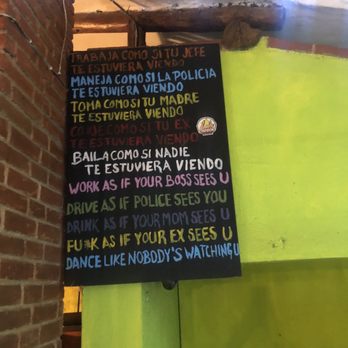 TRABAJA COMO SI TU JEFE
TE ESTUVIERA VIENDO
MANEJA COMO SI LA POLICIA
TE ESTUVIERA VIENDO
TOMA COMO SI TU MADRE
TE ESTUVIERA VIENDO
COMO SI TU EX
TE ESTUVIERA VIENDO
BAILA COMO SI NADIE
TE ESTUVIERA VIENDO
WORK AS IF YOUR BOSS SEES U
DRIVE AS IF POLICE SEES YOU
DRINK AS IF YOUR MOM SEES U
FU*K AS IF YOUR EX SEES U
DANCE LIKE NOBODY'S WATCHING U